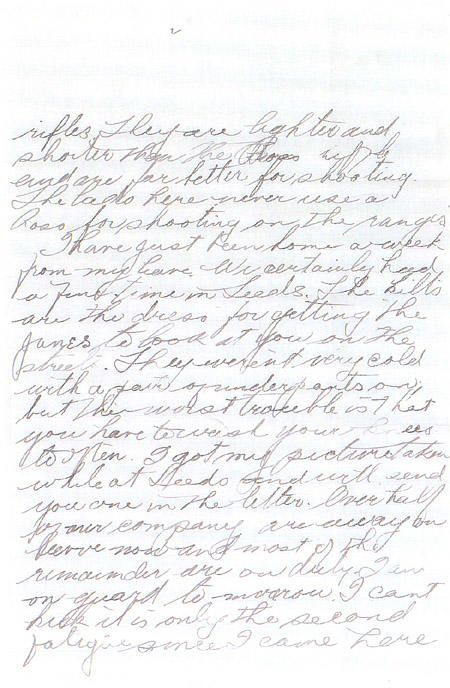 rifles. They are lighter and
shorter than the Ross rifle
and are far better for shooting.
The lads here never use a
Ross for shooting on the ranges
I have just been home a week
from my leave. We certainly had
a fine time in Leeds. The kilts
are the dress for getting the
Janes to look at you on the
street. They weren't very cold
with a pair of underpants on,
but the worst trouble is that
you have to wash your knees
to often. I got my picture taken
while at Leeds and will send
you one in the letter. Over half
of our company are away on
leave now and most of the
remainder are on duty. I am
on guard to-morrow. I cant
kick it is only the second
fatigue since I came here